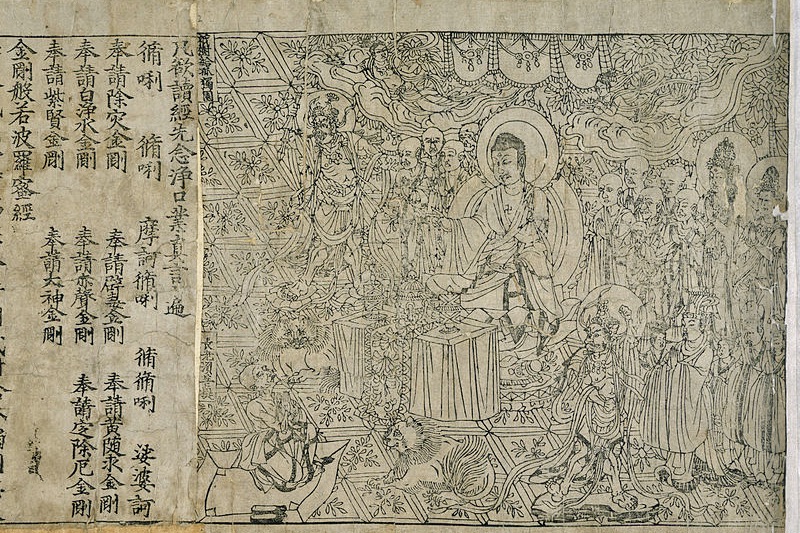 祇樹給孤獨園
凡欲讀經先念淨口業真言一遍
脩唎 脩唎 摩訶脩唎 脩脩唎 娑婆訶
奉請除灾金剛 奉請辟毒金剛 奉請黃随求金剛
奉請白淨水金剛 奉請赤聲金剛 奉請定除厄金剛
奉請紫賢金剛 奉請大神金剛
金剛般若波羅蜜經